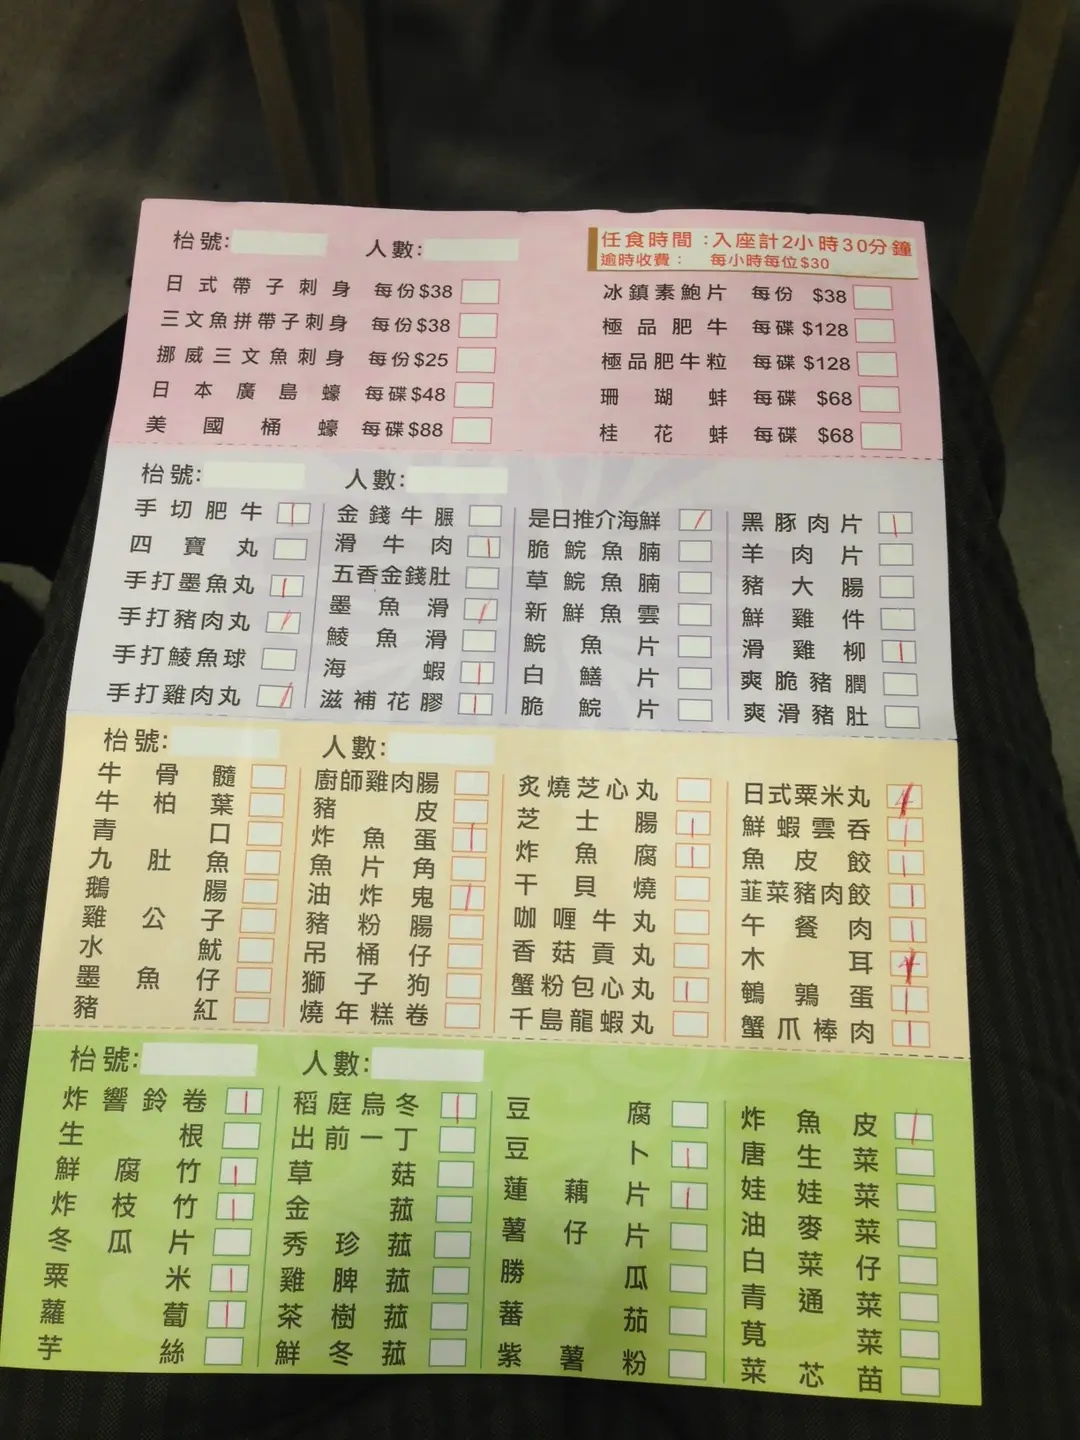 枱號: 人數: 任食時間：入座計2小時30分鐘
逾時收費： 每小時每位$30
日式帶子刺身 每份$38
三文魚拼帶子刺身 每份$38
挪威三文魚刺身 每份$25
日本廣島蠔 每碟$48
美國桶蠔 每碟$88
冰鎮素鮑片 每份 $38
極品肥牛 每碟 $128
極品肥牛粒 每碟 $128
珊瑚蚌 每碟 $68
桂花蚌 每碟 $68
枱號: 人數:
手切肥牛
四寶丸
手打墨魚丸
手打豬肉丸
手打鯪魚球
手打雞肉丸
金錢牛𦟌
滑牛肉
五香金錢肚
墨魚滑
鯪魚滑
海蝦
滋補花膠
是日推介海鮮
脆鯇魚腩
草鯇魚腩
新鮮魚雲
鯇魚片
白鱔片
脆鯇片
黑豚肉片
羊肉片
豬大腸
鮮雞件
滑雞柳
爽脆豬膶
爽滑豬肚
枱號: 人數:
牛骨髓
牛柏葉
青口
九肚魚
鵝腸
雞公子
水魷
墨魚仔
豬紅
廚師雞肉腸
豬皮
炸魚蛋
魚片角
油炸鬼
豬粉腸
吊桶仔
獅子狗
燒年糕卷
炙燒芝心丸
芝士腸
炸魚腐
干貝燒
咖喱牛丸
香菇貢丸
蟹粉包心丸
千島龍蝦丸
日式粟米丸 4
鮮蝦雲吞
魚皮餃
韮菜豬肉餃
午餐肉
木耳
鵪鶉蛋
蟹爪棒肉
枱號: 人數:
炸響鈴卷
生根
鮮腐竹
炸枝竹
冬瓜片
粟米
蘿蔔
芋絲
稻庭烏冬
出前一丁
草菇
金菰
秀珍菰
雞脾菰
茶樹菰
鮮冬菰
豆腐
豆卜
蓮藕片
薯仔片
勝瓜
蕃茄
紫薯粉
炸魚皮
唐生菜
娃娃菜
油麥菜
白菜仔
青通菜
莧菜
菜芯苗